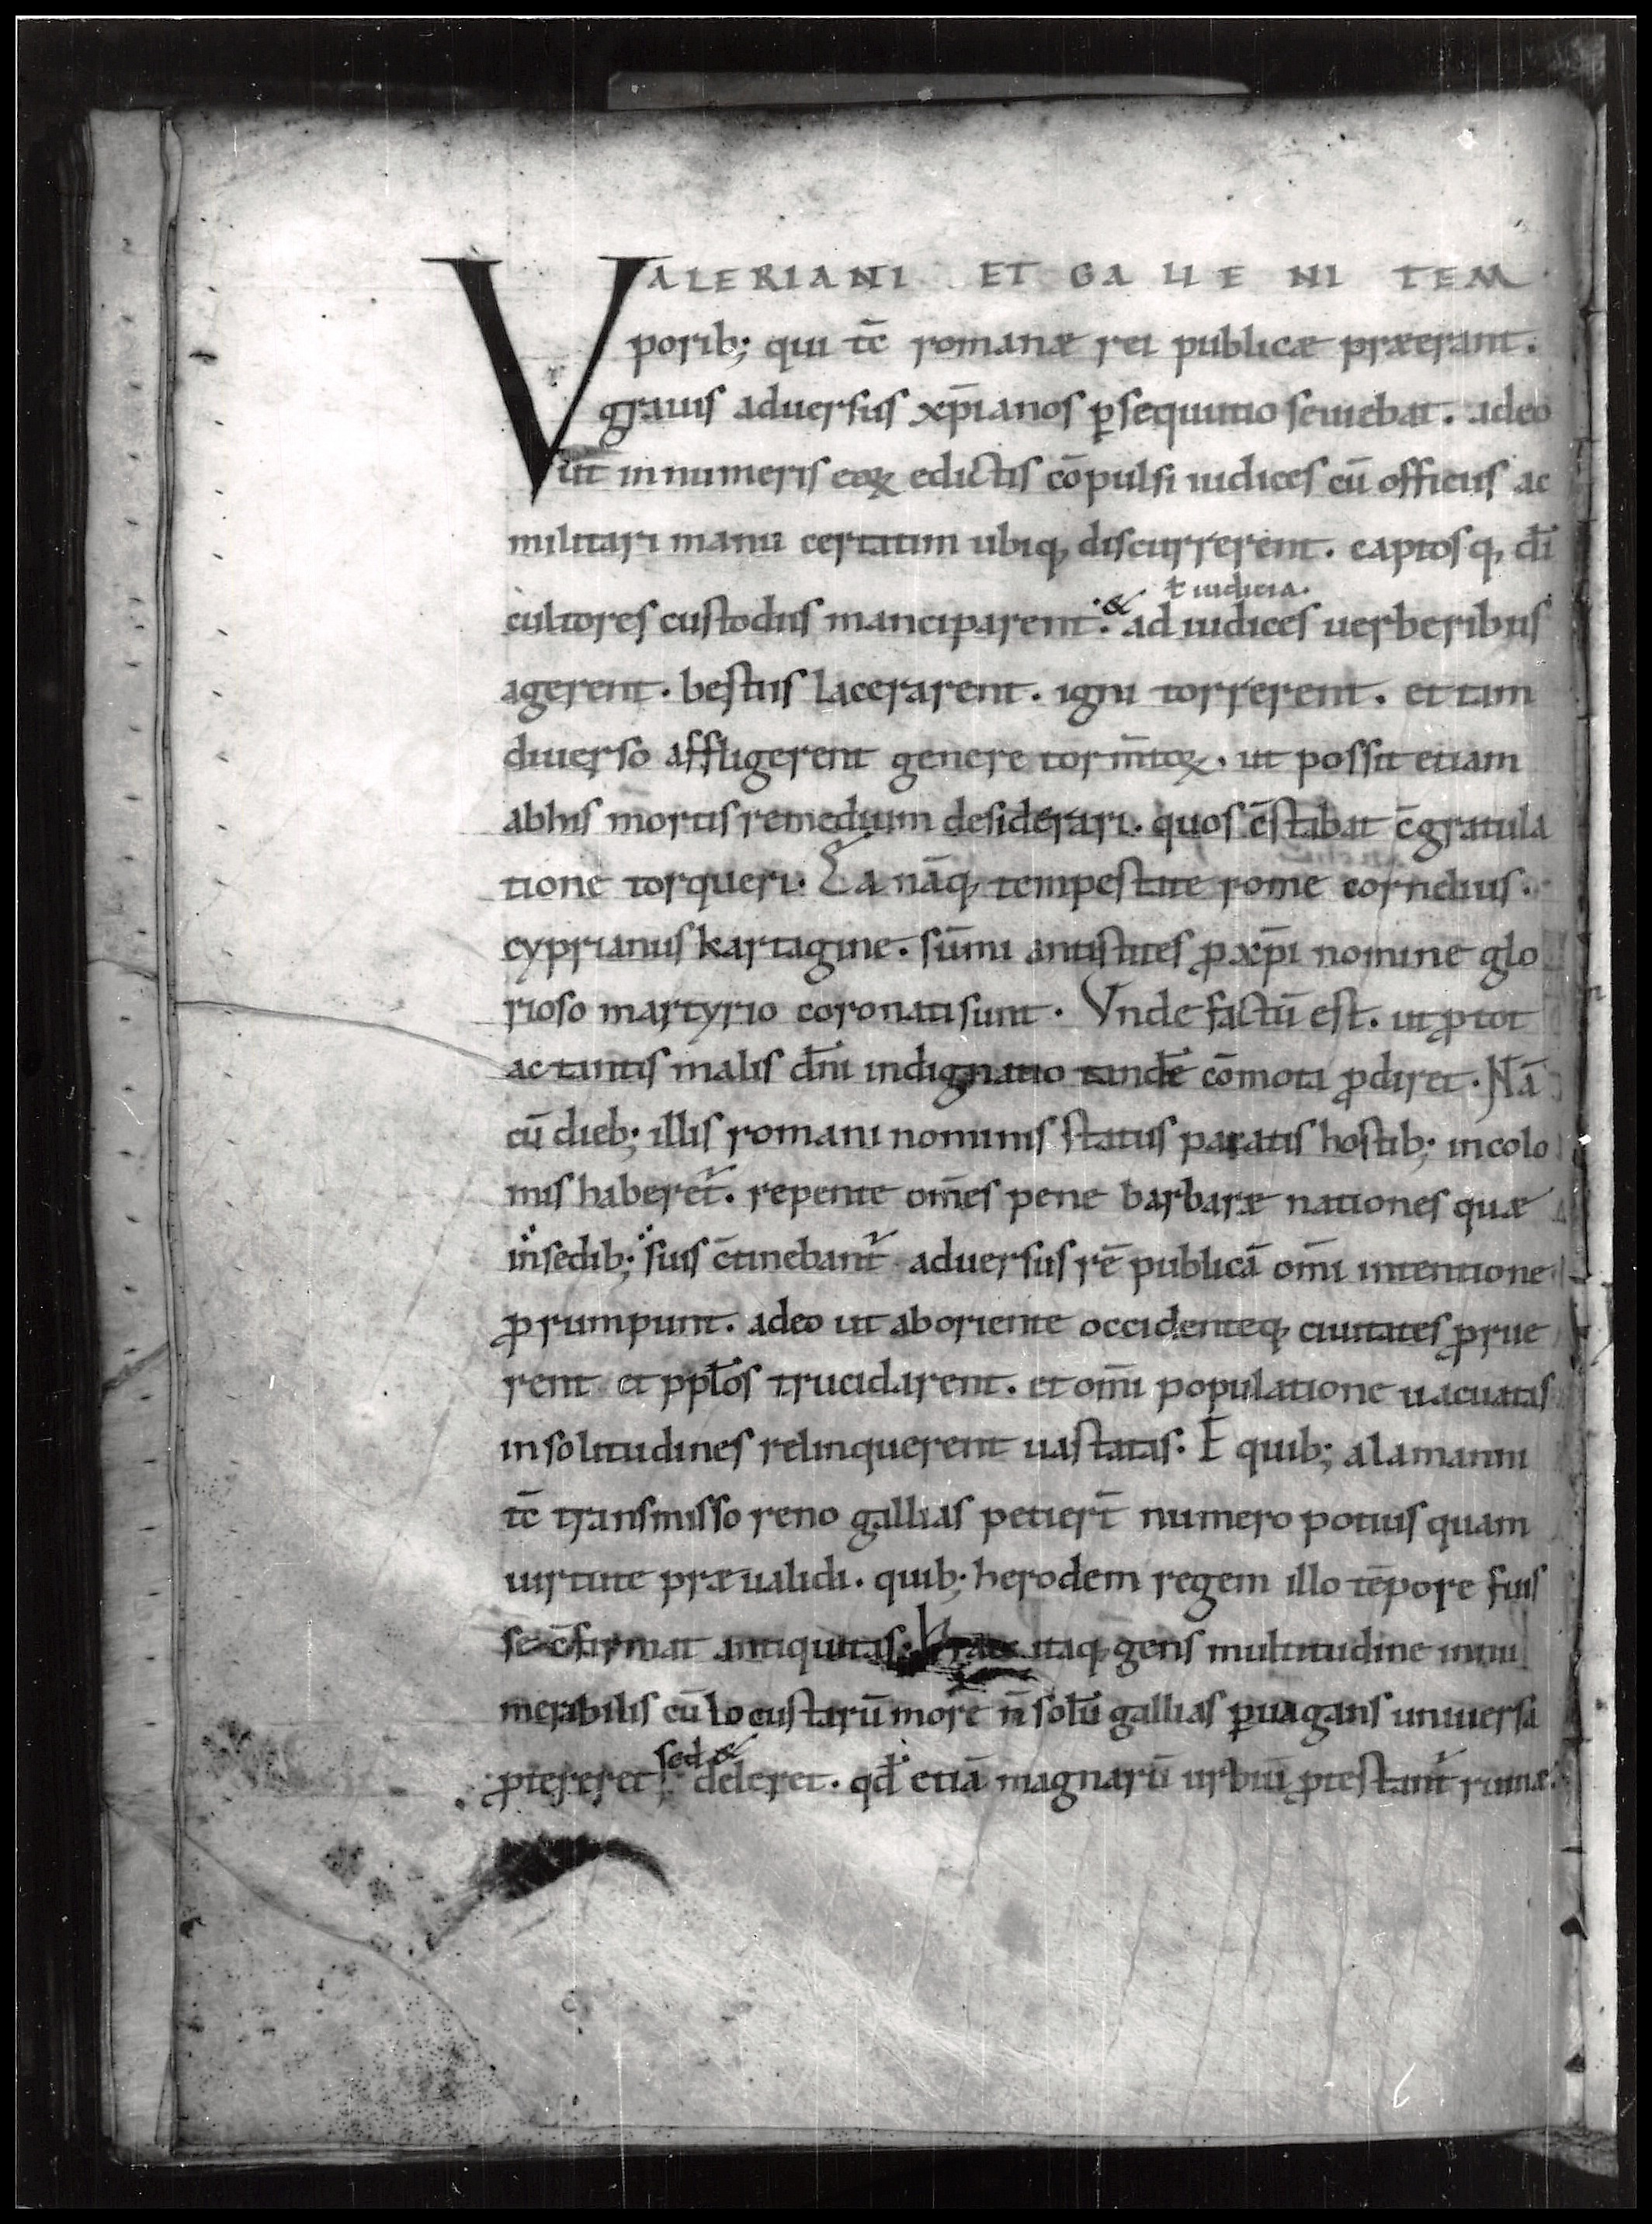 VALERIANI ET GALLIENI TEM
porib; qui tc̄ romanæ rei publicæ præerant.
grauis aduersus xp̄ianos ꝑsequutio seuiebat. adeo
ut innumeris eoꝝ edictis cōpulsi iudices cū officiis ac
militari manu certatim ubiq, discurrerent. captosq, dī
ł iudicia.
cultores custodiis manciparent. & ad iudices uerberibus
agerent. bestiis lacerarent. igni torrerent. et tam
diuerso affligerent genere torm̄toꝝ. ut possit etiam
abhis mortis remedium desiderari. quos c̄stabat c̄gratula
tione torqueri. Ea nāq, tempestate rome cornelius.
cyprianus kartagine. sūmi antistites ꝓ xp̄i nomine glo
rioso martyrio coronati sunt. Vnde factū est. ut ꝓ tot
ac tantis malis dn̄i indignatio tandē cōmota ꝓdiret. Nā
cū dieb; illis romani nominis status paratis hostib; incolo
mis haberet̄. repente om̄es pene barbaræ nationes quæ
in sedib; suis c̄tinebant̄ aduersus rē publicā om̄i intentione
ꝓrumpunt. adeo ut aboriente occidenteq, ciuitates ꝓrue
rent et ppl̄os trucidarent. et om̄i populatione uacuatas
insolitudines relinquerent uastatas. E quib; alamanni
tc̄ transmisso reno gallias petiert̄ numero potius quam
uirtute præualidi. quib; herodem regem illo tēpore fuis
se c̄firmat antiquitas. Hæc itaq, gens multitudine innu
merabilis cū locustarū more n̄ solū gallias ꝑuagans uniuersa
sed &
ꝓtereret, deleret. qd̄ etiā magnarū urbiū ꝓtestant̄ ruinæ.